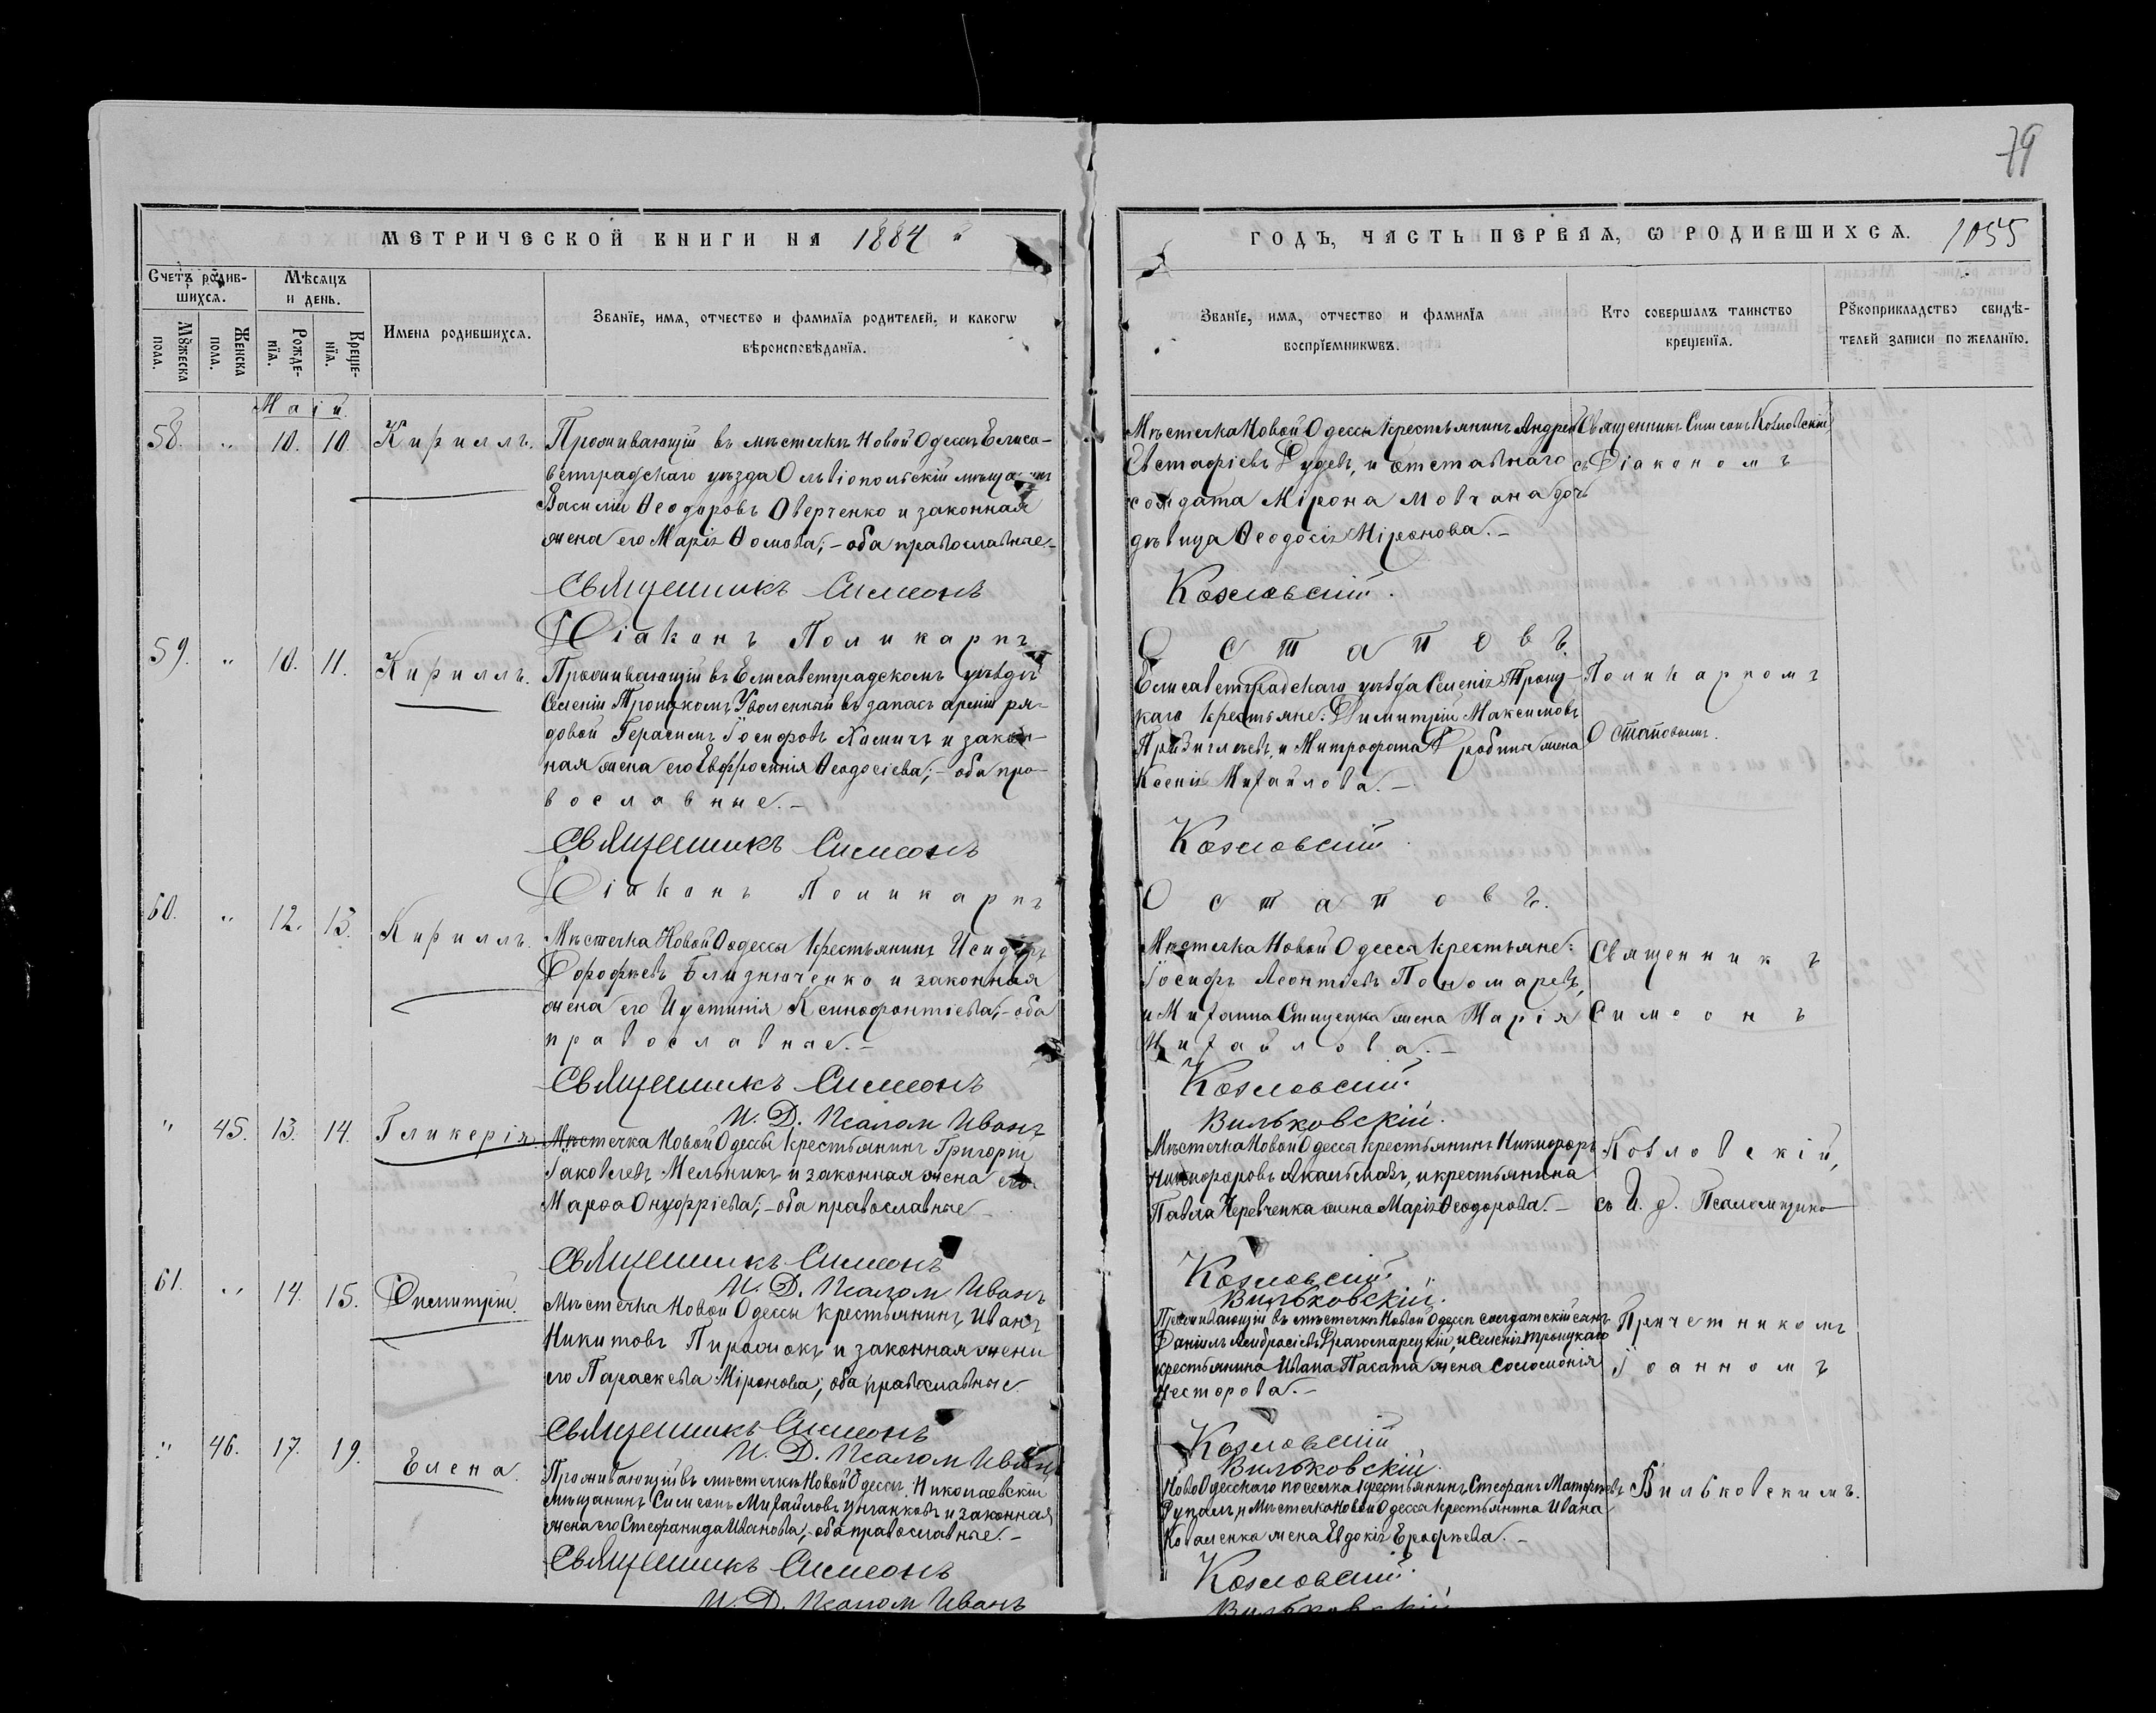 79
МЕТРИЧЕСКОЙ КНИГИ НА 1884
Счетъ родив-
шихся.
Мѣсяцъ
и день.
Мꙋжеска
пола.
Женска
пола.
Рожде-
нїя.
Креще-
нїя.
Имена родившихся.
Званїе, имя, отчество и фамилїя родителей, и какогѡ
вѣроисповѣданїя.
Маій.
58. " 10. 10. Кириллъ.
Проживающій въ мѣстечкѣ Новой Одессѣ Елиса-
ветградскаго уѣзда Ольвіопольскій мѣщанинъ
Василій Ѳеодоровъ Оверченко и законная
жена его Марія Ѳомова; - оба православные. -
Священникъ Симеонъ
Діаконъ Поликарпъ
59. " 10. 11. Кириллъ.
Проживающій въ Елисаветградскомъ уѣздѣ
Селеніи Троицкомъ Уволенный въ запасъ арміи ря-
довой Герасимъ Іосифовъ Хомичъ и закон-
ная жена его Евфросинія Ѳеодосіева; - оба пра-
вославные. -
Священникъ Симеонъ
Діаконъ Поликарпъ
60. " 12. 13. Кириллъ.
Мѣстечка Новой Одессы Крестьянинъ Исидоръ
Дорофѣевъ Близнюченко и законная
жена его Иустинія Ксенофонтіева; - оба
православные. -
Священникъ Симеонъ
И. Д. Псалом Иванъ
" 45. 13. 14. Гликерія.
Мѣстечка Новой Одессы крестьянинъ Григорій
Іаковлевъ Мельникъ и законная жена его
Марѳа Онуфріева; - оба православные -
Священникъ Симеонъ
И. Д. Псалом Иванъ
61. " 14. 15. Димитрій.
Мѣстечка Новой Одессы крестьянинъ Иванъ
Никитовъ Пирожокъ и законная жена
его Параскева Міронова; оба православные.
Священникъ Симеонъ
И. Д. Псалом Иванъ
" 46. 17. 19. Елена.
Проживающій въ мѣстечкѣ Новой Одессѣ, Николаевскій
мѣщанинъ Симеонъ Михайловъ и законная
жена его Стефанида Иванова; - оба православные. -
Священникъ Симеонъ
И. Д. Псалом Иванъ
ГОДЪ, ЧАСТЬ ПЕРВАЯ, Ѡ РОДИВШИХСЯ. 1055
Званїе, имя, отчество и фамилїя
воспрїемникѡвъ.
Кто совершалъ таинство
крещенїя.
Рꙋкоприкладство свидѣ-
телей записи по желанїю.
Мѣстечка Новой Одессы крестьянинъ Андрей
Евстафіевъ Дудевъ, и отставнаго
солдата Мірона Мовчана дочь
дѣвица Ѳеодосія Міронова. -
Священникъ Симеонъ Козловскій
съ Діакономъ
Козловскій.
Остаповъ.
Елисаветградскаго уѣзда Селенія Троиц-
каго крестьяне: Димитрій Максимовъ
и Митрофана жена
Ксенія Михайлова. -
Поликарпомъ
Остаповымъ.
Козловскій
Остаповъ.
Мѣстечка Новой Одессы крестьяне:
Іосифъ Леонтіевъ Пономаревъ,
и Стиценка жена Марія
Михайлова. -
Священникъ
Симеонъ
Козловскій.
Вильковскій.
Мѣстечка Новой Одессы крестьянинъ Никифоръ
Никифоровъ, и крестьянина
Павла Черевченка жена Марія Ѳеодорова. -
Козловскій,
съ И. д. Псаломщика
Козловскій
Вильковскій.
Проживающій въ мѣстечкѣ Новой Одессѣ солдатскій сынъ
Даніилъ Амбросіевъ, и Селенія Троицкаго
крестьянина Ивана Пасата жена Соломонія
Несторова. -
Причетникомъ
Іоанномъ
Козловскій
Вильковскій.
Новоодесскаго поселка крестьянинъ Стефанъ
и Мѣстечка Новой Одессы крестьянина Ивана
Коваленка жена Евдокія Ерофѣева. -
Вильковскимъ.
Козловскій.
Вильковскій